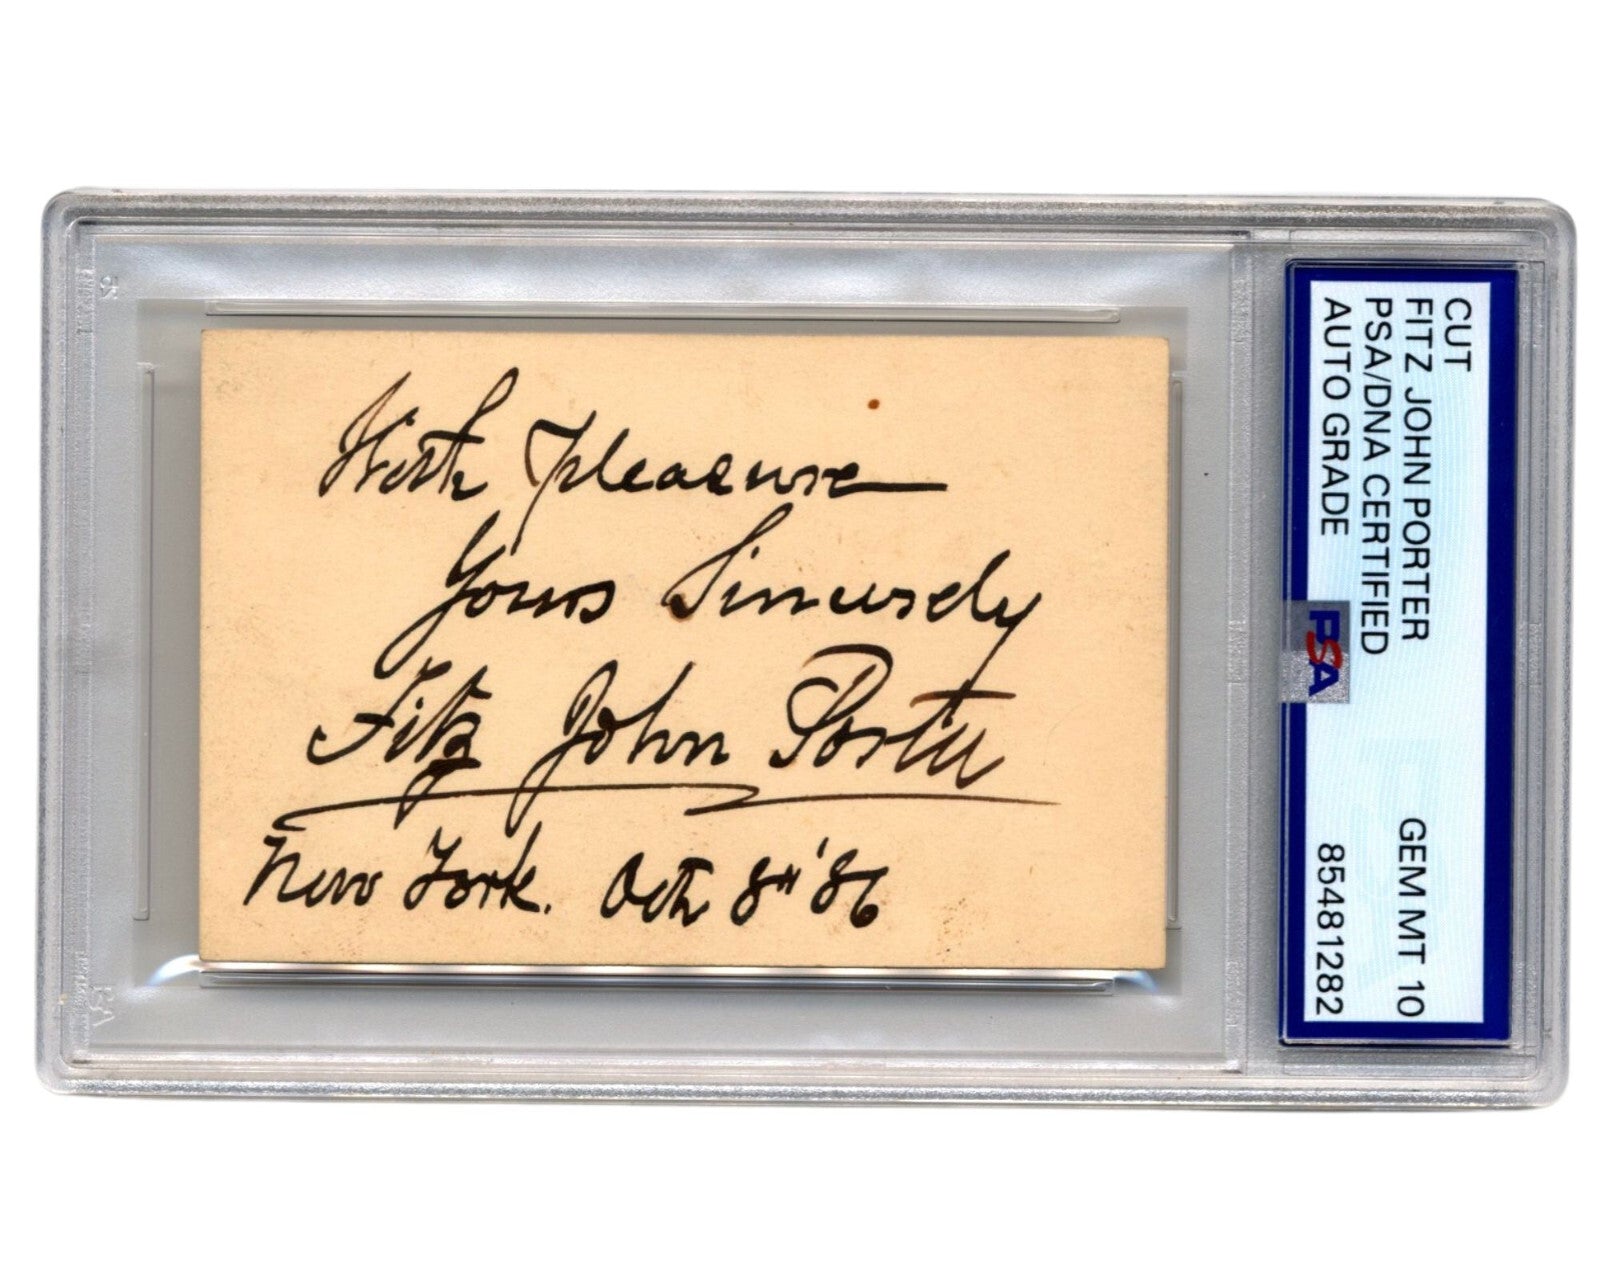 With pleasure
Yours Sincerely
Fitz John Porter
New York. Octr 8th '86
CUT
FITZ JOHN PORTER
PSA/DNA CERTIFIED
AUTO GRADE
GEM MT 10
85481282
PSA